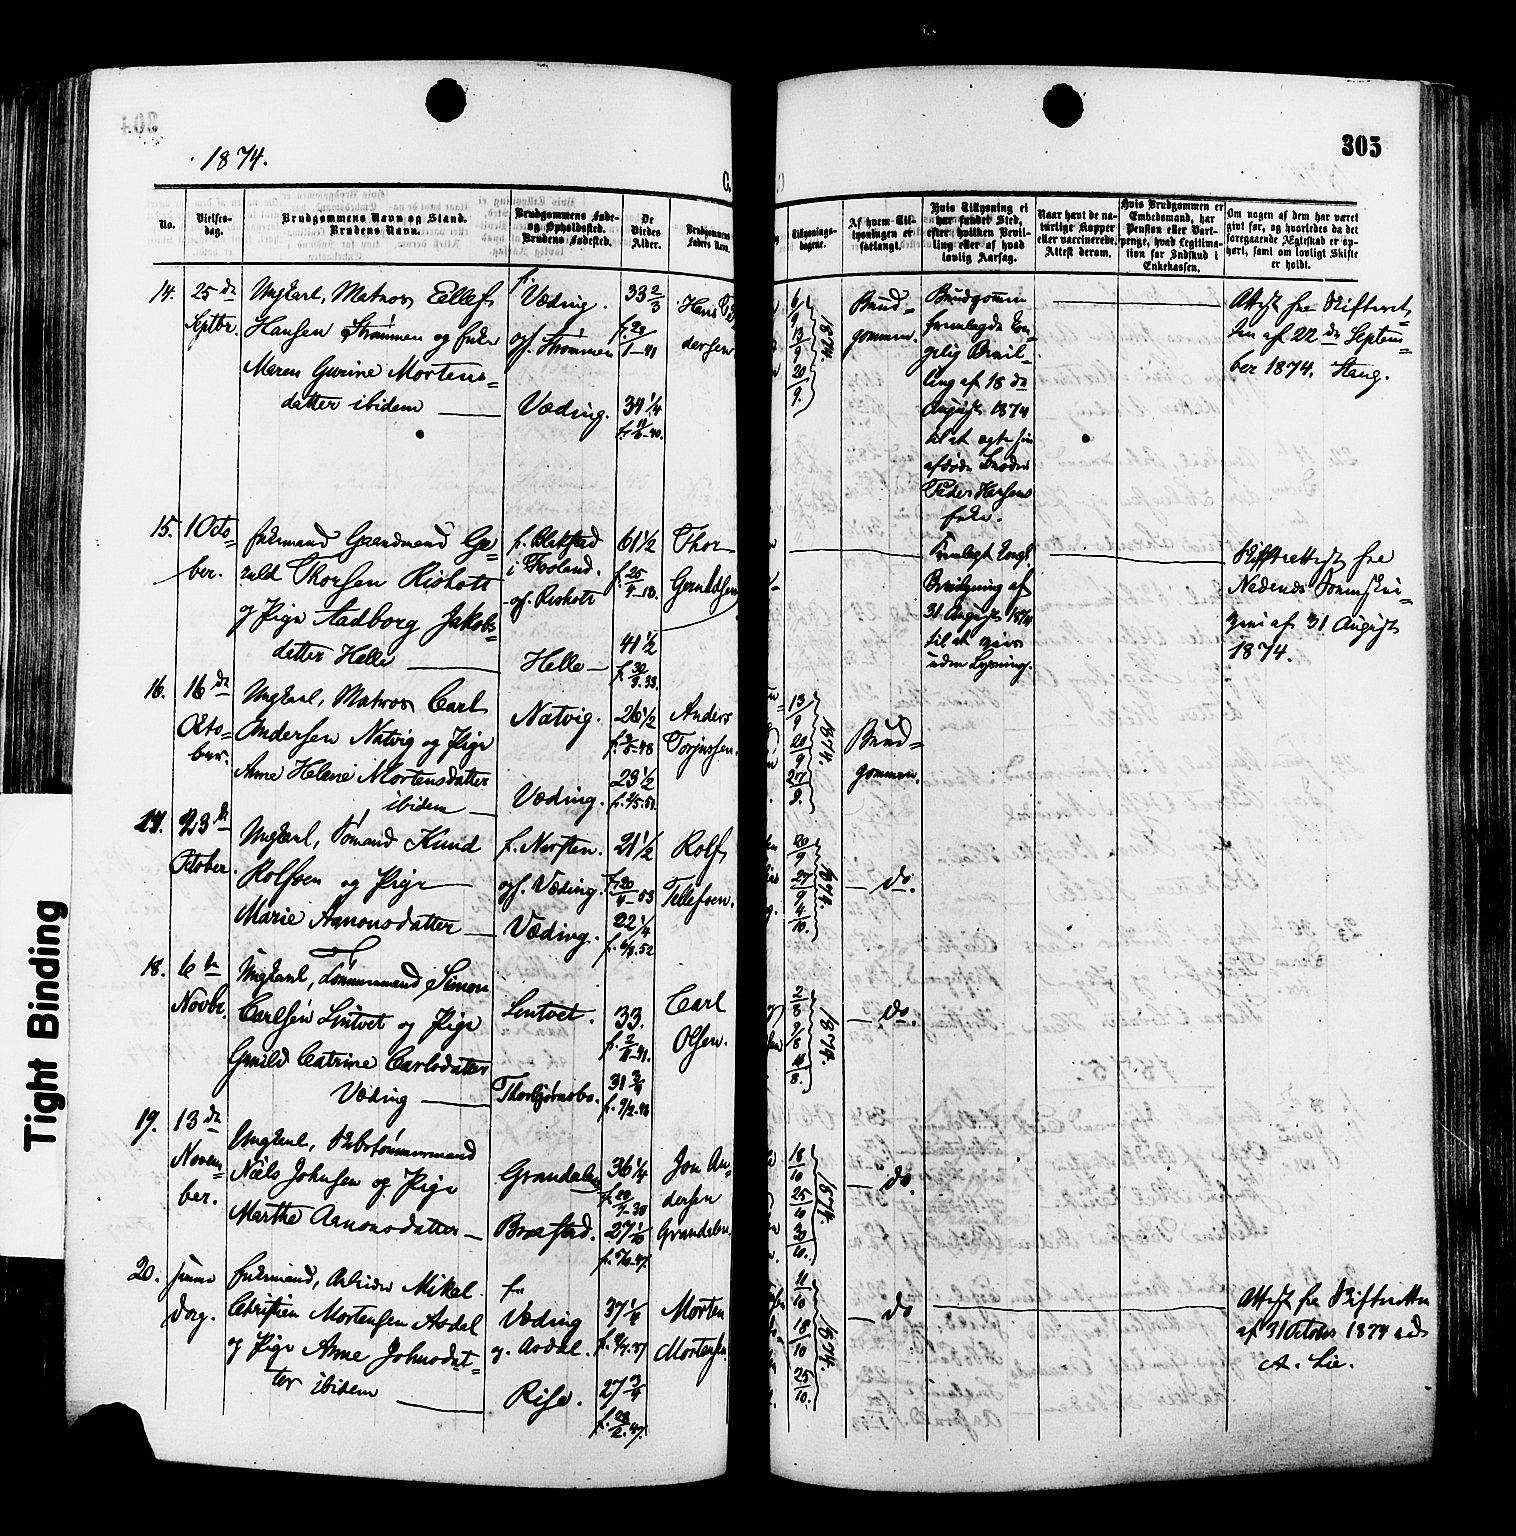 1874.
303
C.
No.
Vielses-
dag.
Brudgommens Navn og Stand.
Brudens Navn.
Brudgommens Føde-
og Opholdssted.
Brudens Fødested.
De
Viedes
Alder.
Brudgommens
Faders Navn.
Tillysnings-
dagene.
Af hvem Til-
lysningen er
forlangt.
Hvis Tillysning ei
har fundet Sted,
efter hvilken Bevil-
ling eller af hvad
lovlig Aarsag.
Naar havt de na-
turlige Kopper
eller vaccinerede.
Attest derom.
Hvis Brudgommen er
Embedsmand, har
Pension eller Vart-
penge, hvad Legitima-
tion for Indskud i
Enkekassen.
Om nogen af dem har været
gift før, og hvorledes da det
foregaaende Ægteskab er op-
hørt, samt om lovligt Skifte
er holdt.
14.
25 de
Septbr.
Ungkarl, Matros Eellef
Hansen Strømmen og Enke
Maren Gurine Mortens-
datter ibidem
f.
Væding.
og. Strømmen
Væding.
33 2/3
34 1/4
Hans
dersen
6/9
13/9
20/9.
1874.
Brud-
gommen.
Brudgommen
fremlagde Kon-
gelig Bevil-
ling af 18 de
August 1874
til at egte sin
afdøde Broder
Peder Hansens
Enke.
Attest fra Skifteret-
ten af 22 de Septem-
ber 1874. Stang.
15.
1 Octo-
ber.
Enkemand Gaardmand Ge-
ruld Thorsen Risholt
og Pige Aadborg Jakobs-
datter Helle
f. Blakstad
i Froland.
og. Risholt
Helle
61 1/2
41 1/2
Thor
Geruldsen
Fremlagt Kongl.
Bevilgning af
31 August 1874
til at vies
uden Lysning.
Skifteattest fra
Nedenæs Sorenskri-
veri af 31 August
1874.
16.
16 de
Octo-
ber.
Ungkarl, Matros Carl
Andersen Natvig og Pige
Anne Helene Mortensdatter
ibidem
Natvig.
Væding.
26 1/2
23 1/2
Anders
Torjussen.
13/9
20/9
27/9.
1874.
Brud-
gommen.
17.
23 de
October.
Ungkarl, Sømand Knud
Rolfsen og Pige
Marie Aanonsdatter
f. Nersten.
og. Væding.
Væding.
21 1/2
22 1/4
Rolf
Tellefsen.
20/9
27/9
4/10.
1874.
do.
18.
6 te
Novbr.
Ungkarl, Tømmermand Simon
Carlsen Lintvet og Pige
Gunild Catrine Carlsdatter
Væding
Lintvet.
Thorbjørnsbo.
33.
31 3/4
Carl
Olsen.
2/8
9/8
1874.
do.
19.
13 de
Novem-
ber.
Ungkarl, Skibstømmermand
Niels Johnsen og Pige
Marthe Aanonsdatter
Grandalen
Braastad.
36 1/4
Jon An-
dersen
Grandalen.
18/10
25/10
30/10.
1874.
do.
20.
samme
Dag.
Enkemand, Arbeider Mikal
Christian Mortensen Asdal
og Pige Anne Johnsdat-
ter ibidem
f.
Væding
og. Asdal.
Rise.
37 1/4
27 3/4
Morten
Mortensen.
11/10
18/10
25/10.
1874.
do
Attest fra Skifteretten
af 31 October 1874 ved
A. Lie.
Tight Binding